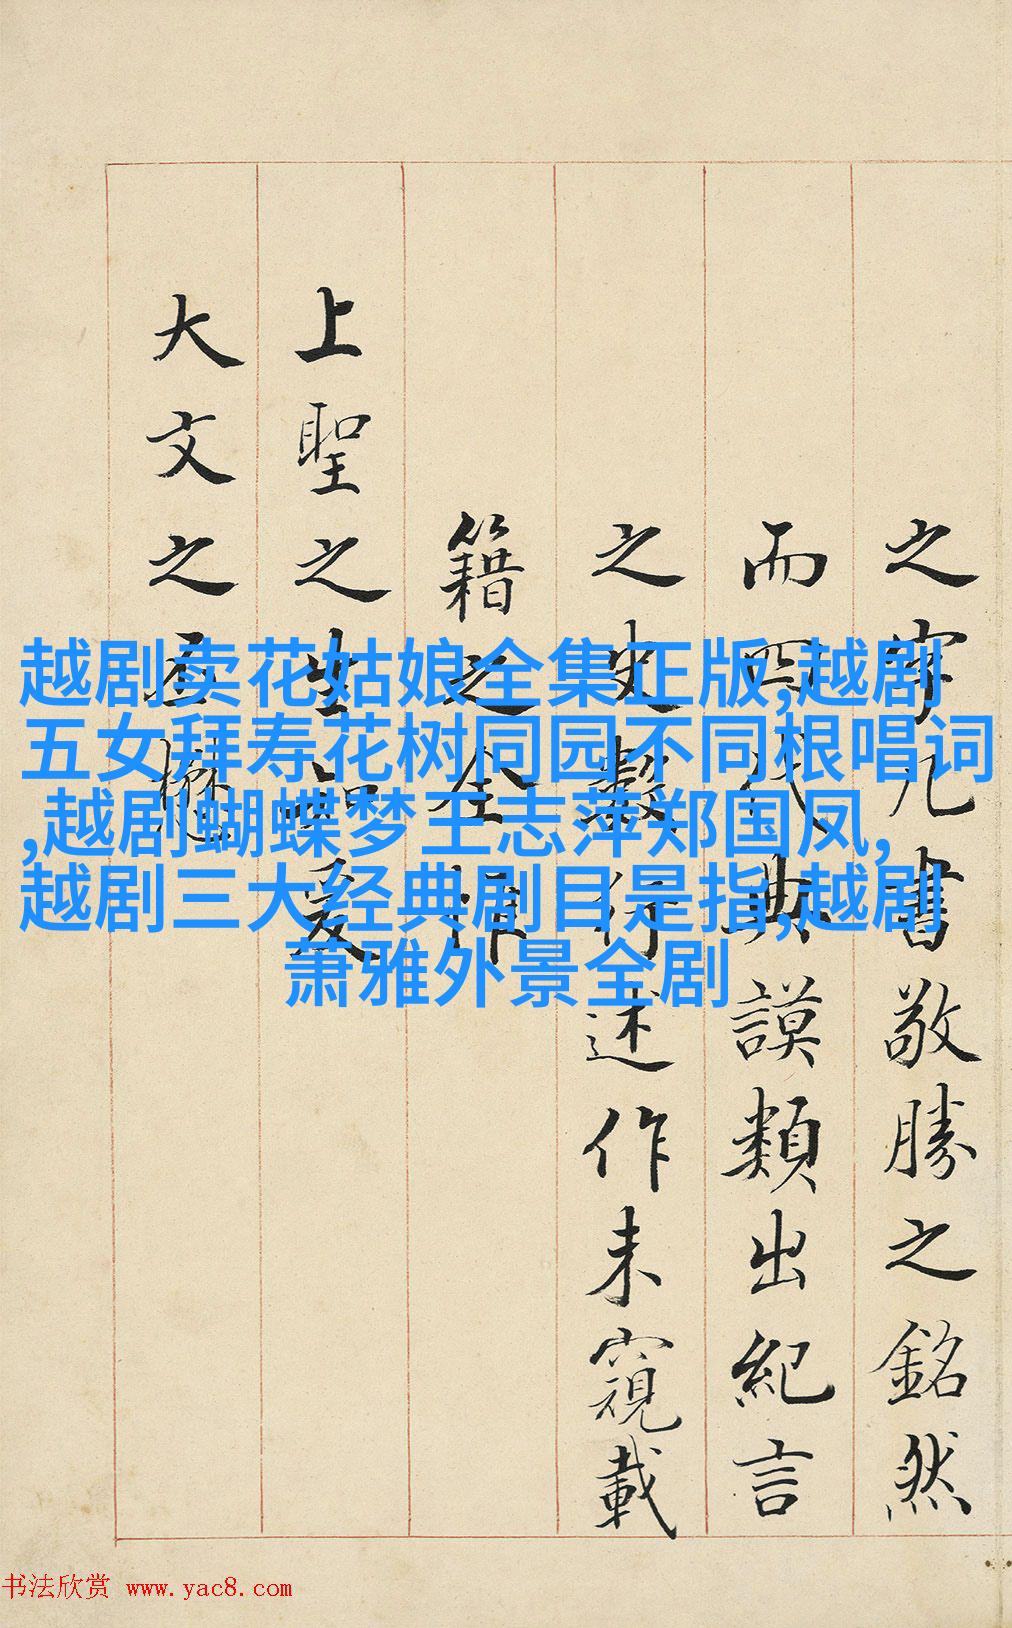 越剧卖花姑娘全集正版,越剧
五女拜寿花树同园不同根唱词
,越剧蝴蝶梦王志萍郑国凤,
越剧三大经典剧目是指,越剧
萧雅外景全剧
之几書敬勝之銘然
而四代典謨類出紀言
之史行述作未窺載
籍之全惟
上聖之生知爰
大文之丕懋
书法欣赏 www.yac8.com